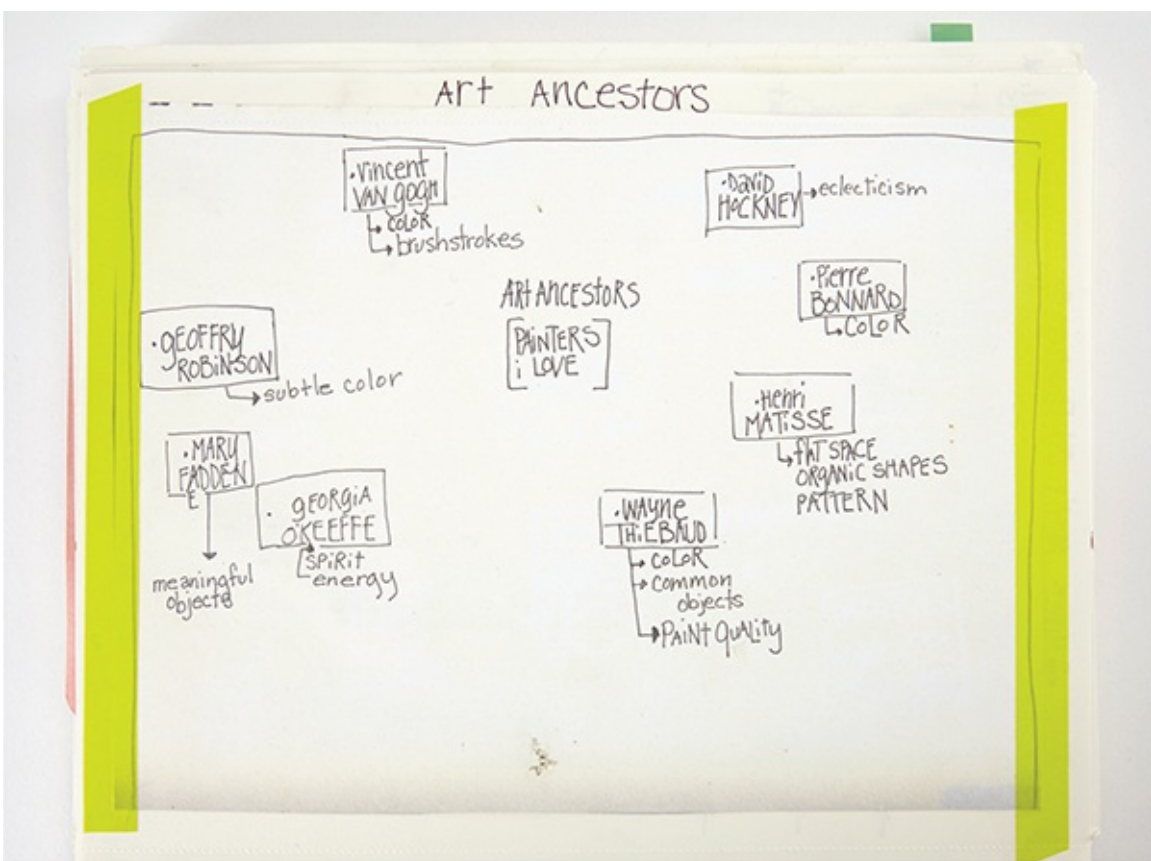 Art Ancestors
·Vincent
VAN gOgH
COLOR
brushstrokes
·DaViD
HOCKNEY
eclecticism
·Pierre
BONNARD
COLOR
ARt ANCEStORS
PAiNTERS
i LOVE
·gEOFFRY
ROBiNSON
subtle color
·Henri
MATiSSE
flAT SPACE
ORGANiC SHAPES
PATTERN
·MARY
FADDEN
E
meaningful
objects
·gEORGiA
O'KEEFFE
SPiRit
energy
·WAYNe
THiEBAUD
COLOR
common
objects
PAiNt QUALity